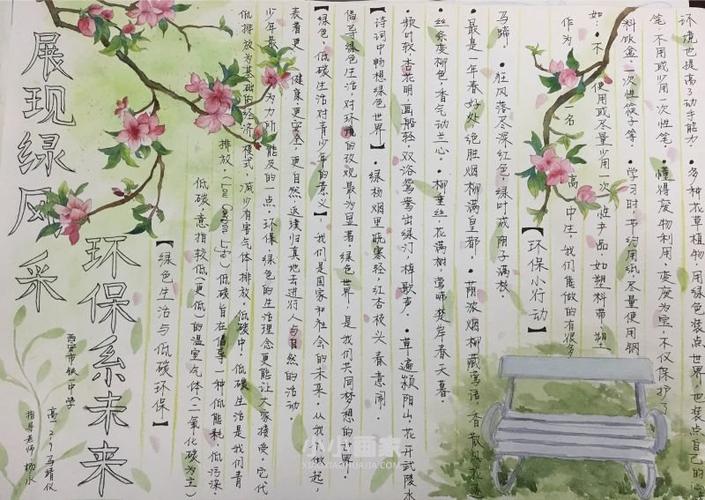 展现绿风采
环保系未来
西安市铁一中学
【绿色生活与低碳环保】
低碳，意指较低(更低)的温室气体(二氧化碳为主)
排放。(Low Carbon Life)低碳旨在倡导一种低能耗、低污染、
低排放为基础的经济模式，减少有害气体排放。低碳中，低碳生活是我们青
少年最为力所能及的一点，环保绿色的生活理念更能让大家接受。它代
表着更健康更安全、更自然 返璞归真地去进行人与自然的活动。
【绿色，低碳生活对青少年的意义】我们是国家和社会的未来，从我们做起，
倡导绿色生活，对环境的改观最为显著。绿色世界，是我们共同梦想的世界。
【诗词中畅想绿色世界】·绿杨烟里晓寒轻，红杏枝头春意闹
·嫩叶软，杏花明，画船轻。双浴鸳鸯出绿汀，棹歌声。·草遍颍阳山，花开武陵水
·丝条度柳色，香气动兰心。·柳垂丝，花满树，莺啼楚岸春天暮。
·最是一年春好处，绝胜烟柳满皇都。·荫浓烟柳藏莺语，香散风花逐
马蹄。·狂风落尽深红色，绿叶成阴子满枝。
【环保小行动】
作为一名高中生，我们能做的有很多
如：·不使用或尽量少用一次性产品 如塑料带、塑
料饭盒、一次性筷子等·学习时，节约用纸，尽量使用钢
笔 不用或少用一次性笔。·懂得废物利用，变废为宝，不仅保护了
环境也提高了动手能力·多种花草植物，用绿色装点世界，也装点自己的